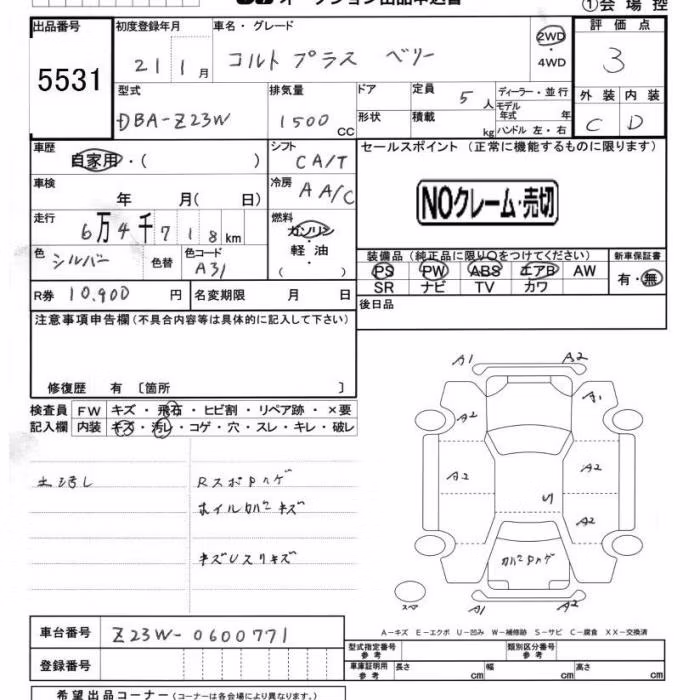 オークション出品申込書
①会場控
出品番号 初度登録年月 車名・グレード 評価点
5531 21 1月 コルトプラス ベリー 2WD・4WD 3
型式 排気量 ドア 定員 5人 ディーラー・並行 外装 内装
DBA-Z23W 1500CC 形状 積載 kg モデル年式 年 C D
ハンドル 左・右
車歴 シフト セールスポイント (正常に機能するものに限ります)
自家用・( ) CA/T
車検 冷房 NOクレーム・売切
年 月( 日) AA/C
走行 燃料
6万4千718km ガソリン
軽油
( )
色 色替 色コード 装備品(純正品に限り○をつけてください) 新車保証書
シルバー A31 PS PW ABS エアB AW 有・無
SR ナビ TV カワ
R券 10,900円 名変期限 月 日 後日品
注意事項申告欄(不具合内容等は具体的に記入して下さい)
修復歴 有〔箇所 〕
検査員 FW キズ・飛石・ヒビ割・リペア跡・×要
記入欄 内装 キズ・汚レ・コゲ・穴・スレ・キレ・破レ
土汚し RスポPハゲ
ホイルカバーキズ
キズUスリキズ
A1 A2
A2 A1
A2 A2
U A2
カバーPハゲ
スペア A1 A2
A-キズ E-エクボ U-凹み W-補修跡 S-サビ C-腐食 XX-交換済
車台番号 Z23W-0600771
型式指定番号 参考 類別区分番号 参考
登録番号 車庫証明用 参考 長さ cm 幅 cm 高さ cm
希望出品コーナー(コーナーは各会場により異なります。)